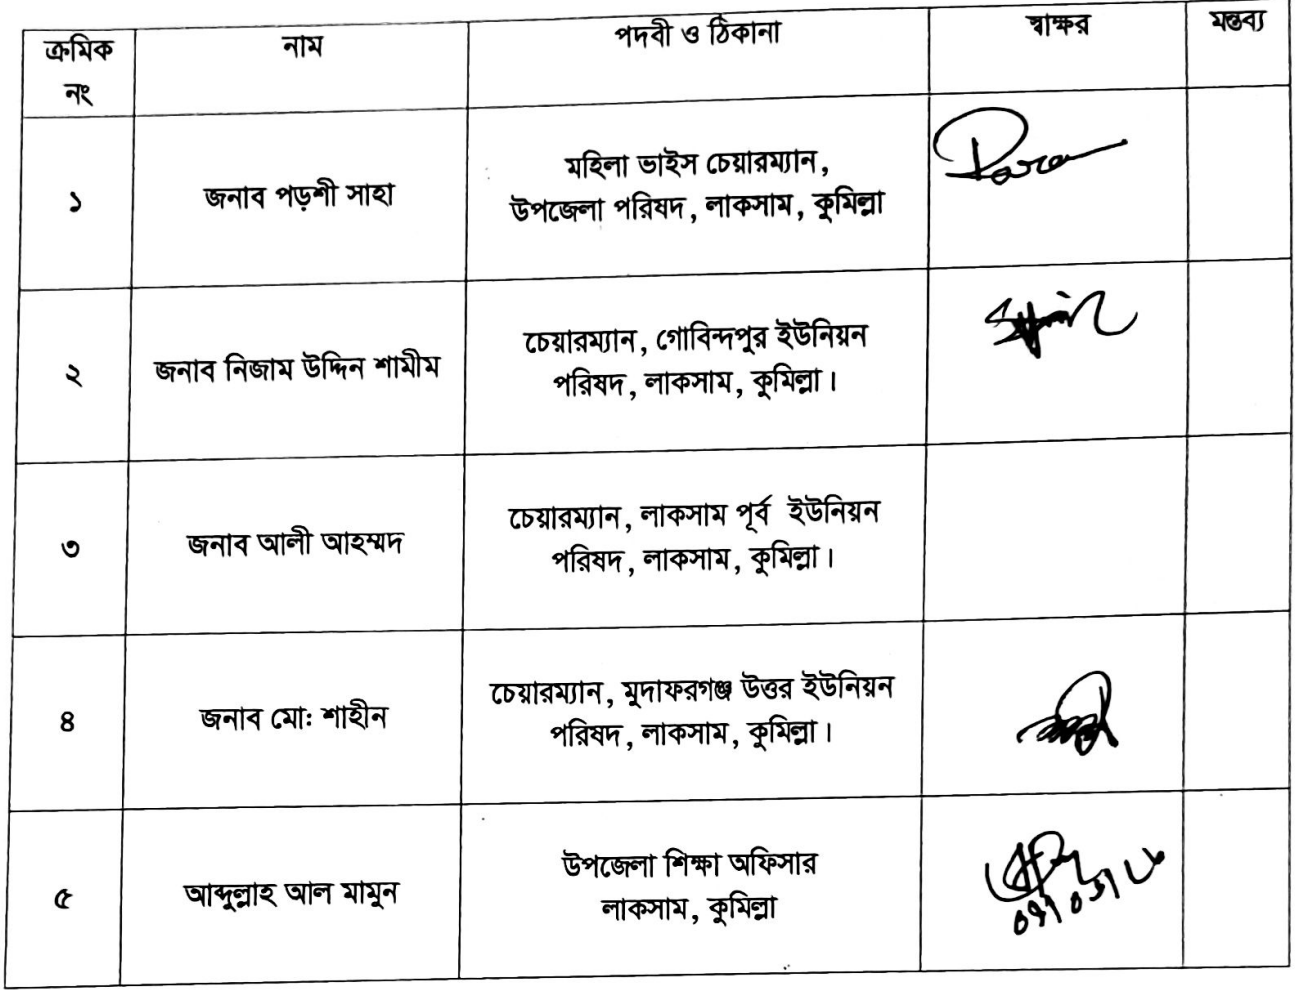 ক্রমিক নং নাম পদবী ও ঠিকানা স্বাক্ষর মন্তব্য
১ জনাব পড়শী সাহা মহিলা ভাইস চেয়ারম্যান,
উপজেলা পরিষদ, লাকসাম, কুমিল্লা
২ জনাব নিজাম উদ্দিন শামীম চেয়ারম্যান, গোবিন্দপুর ইউনিয়ন
পরিষদ, লাকসাম, কুমিল্লা।
৩ জনাব আলী আহম্মদ চেয়ারম্যান, লাকসাম পূর্ব ইউনিয়ন
পরিষদ, লাকসাম, কুমিল্লা।
৪ জনাব মো: শাহীন চেয়ারম্যান, মুদাফরগঞ্জ উত্তর ইউনিয়ন
পরিষদ, লাকসাম, কুমিল্লা।
৫ আব্দুল্লাহ আল মামুন উপজেলা শিক্ষা অফিসার
লাকসাম, কুমিল্লা